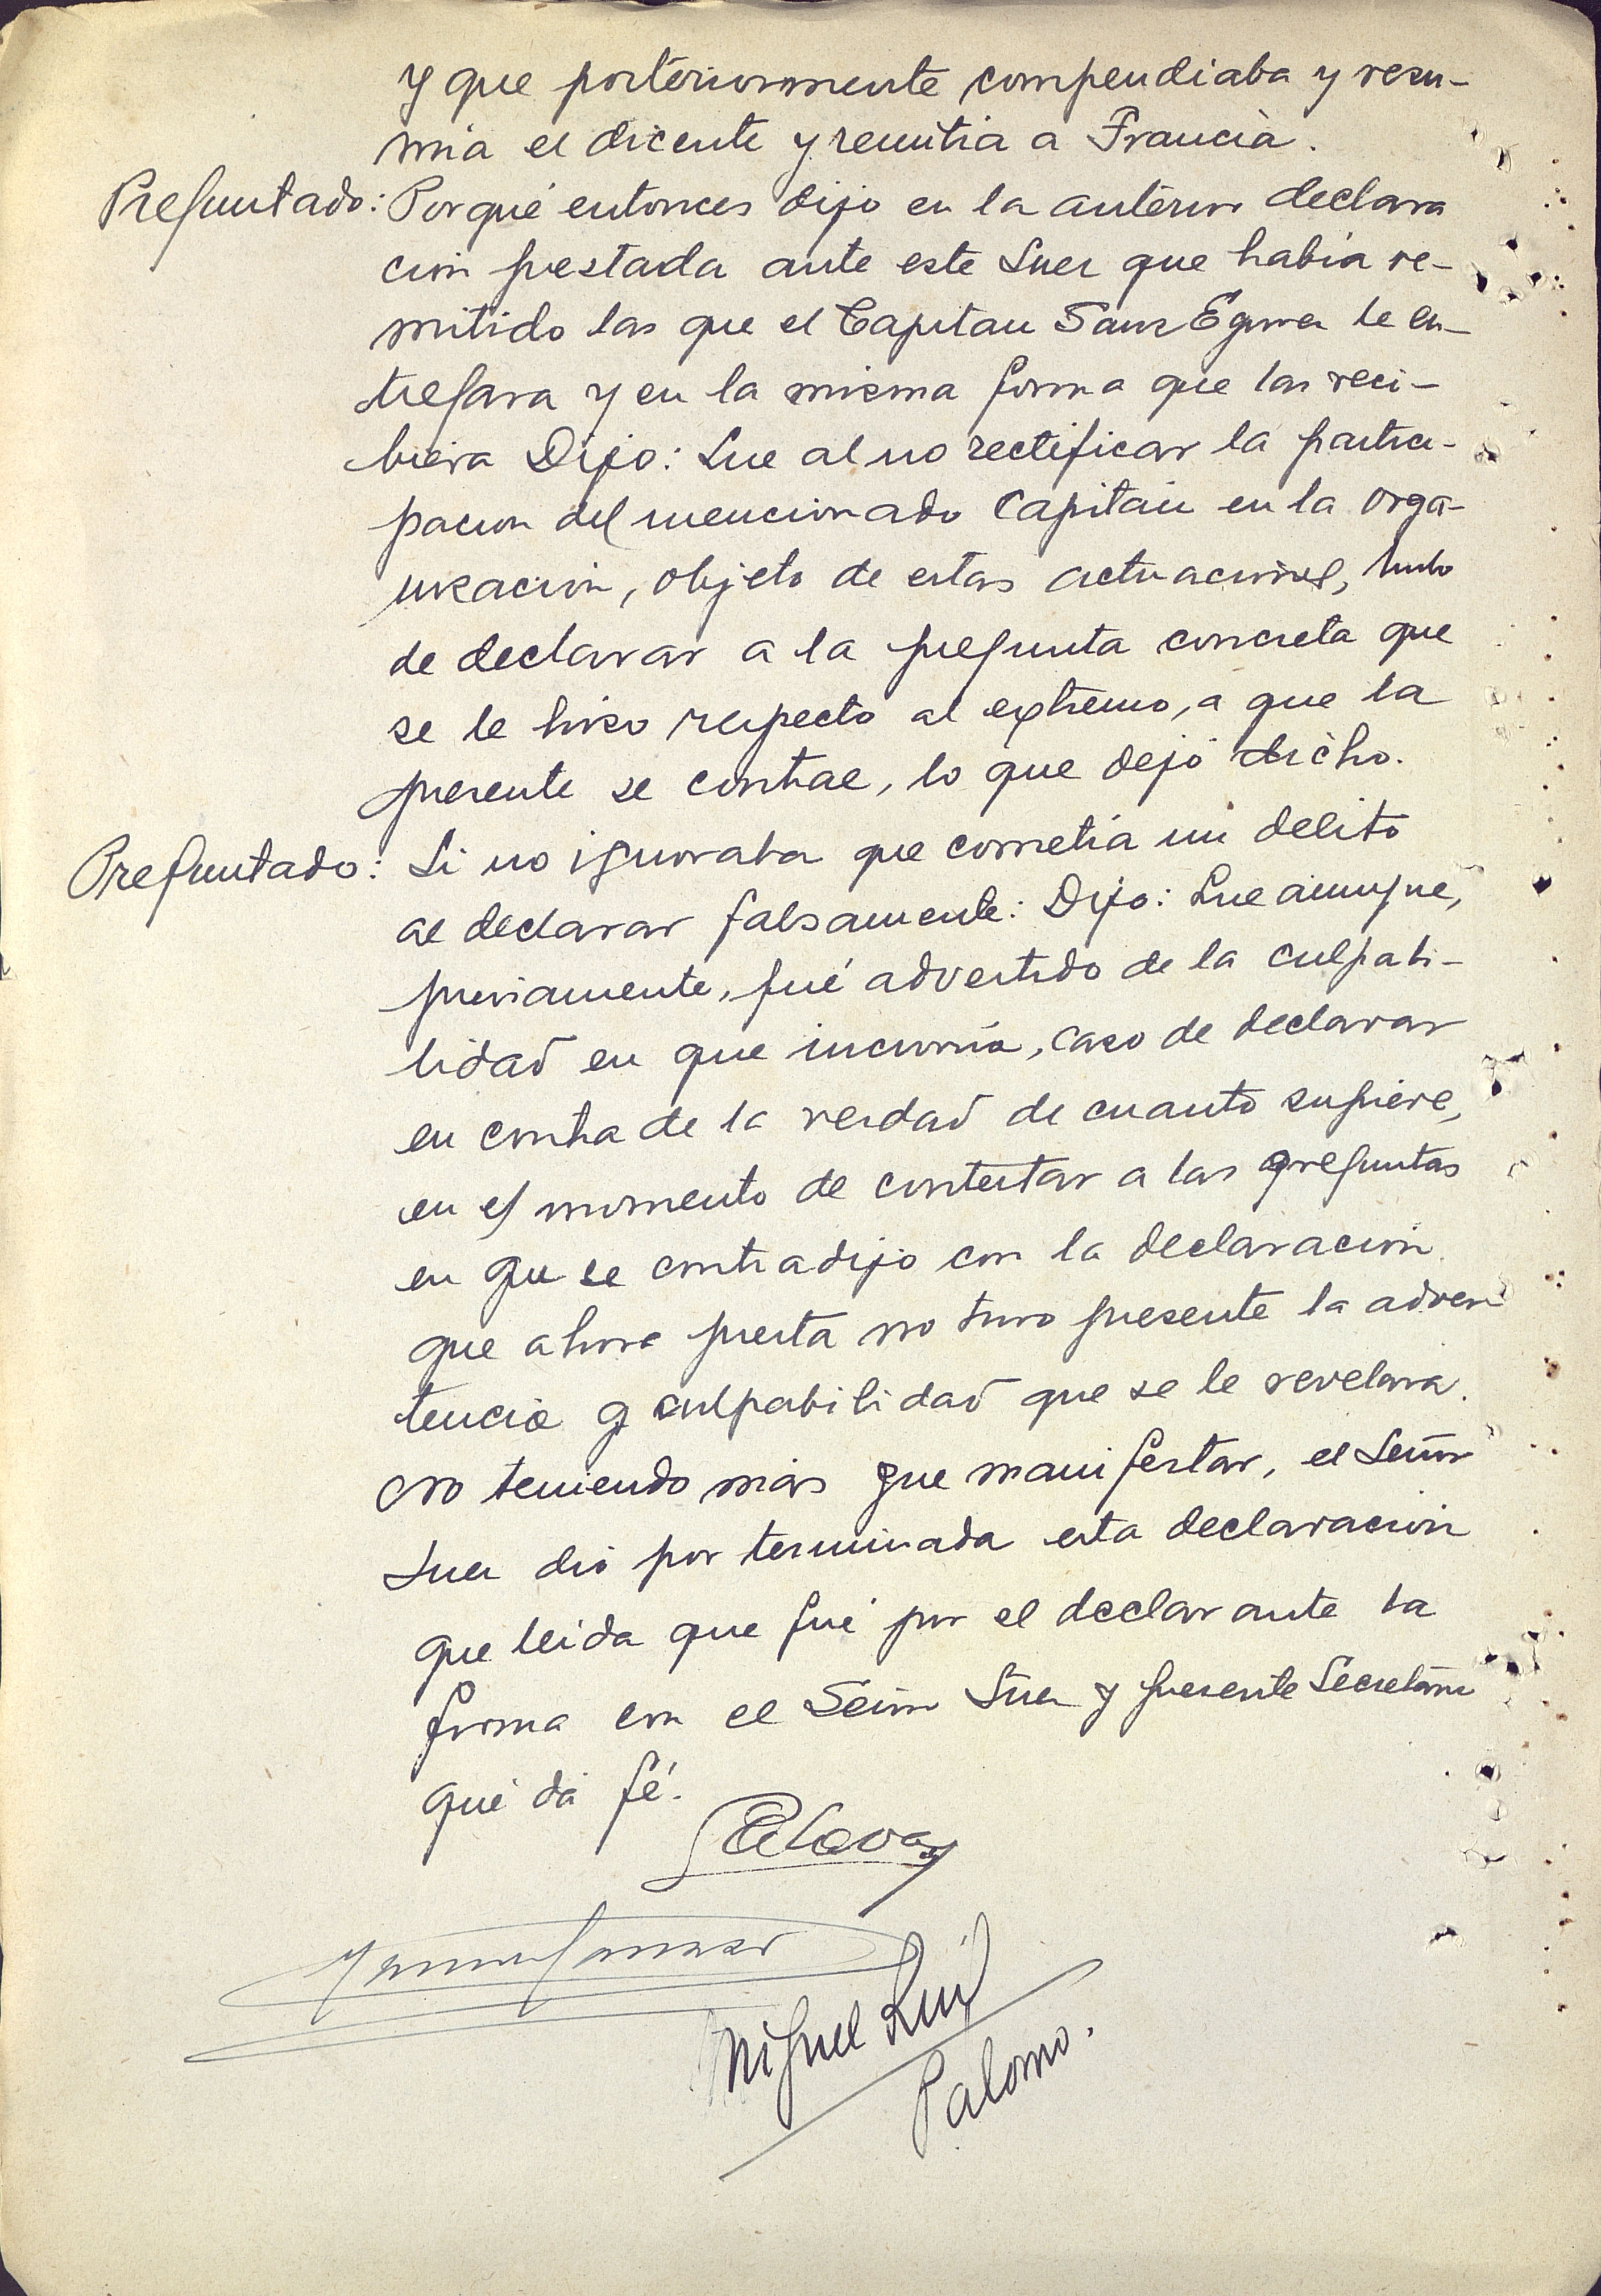 y que posteriormente compendiaba y resu-
mia el dicente y remitia a Francia.
Preguntado: Porqué entonces dijo en la anterior declara
cion prestada ante este Juez que habia re-
mitido las que el Capitan Sanz Eguren le en-
tregara y en la misma forma que las reci-
biera Dijo: Que al no rectificar la partici-
pacion del mencionado Capitán en la orga-
nizacion, objeto de estas actuaciones, hubo
de declarar a la pregunta concreta que
se le hizo respecto al extremo, a que la
presente se contrae, lo que dejó dicho.
Preguntado: Si no ignoraba que cometia un delito
al declarar falsamente: Dijo: Que aunque,
previamente, fué advertido de la culpabi-
lidad en que incurria, caso de declarar
en contra de la verdad de cuanto supiere,
en el momento de contestar a las preguntas
en que se contradijo con la declaración
que ahora presta no tuvo presente la adver
tencia y culpabilidad que se le revelara.
No teniendo más que manifestar, el Señor
Juez dió por terminada esta declaración
que leida que fué por el declarante la
firma con el Señor Juez y presente Secretario
que da fé.
Miguel Ruiz
Palomo.